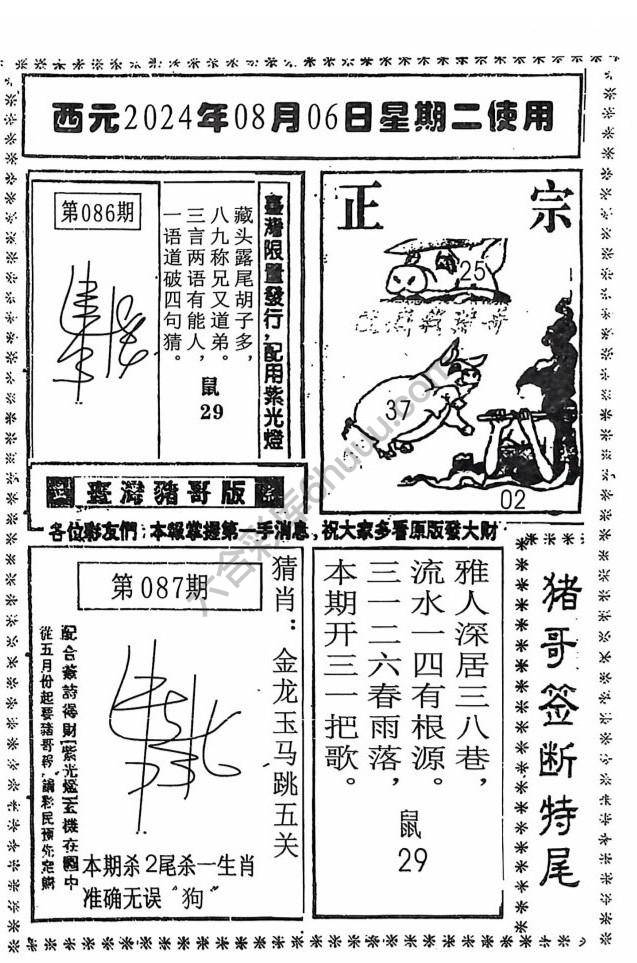 西元2024年08月06日星期二使用
第086期
臺灣限量發行,配用紫光燈
藏头露尾胡子多,
八九称兄又道弟。
三言两语有能人,
一语道破四句猜。
鼠
29
正宗
25
37
02
臺灣豬哥版
各位彩友們:本報掌握第一手消息,祝大家多看原版發大財
第087期
猜肖:金龙玉马跳五关
配合簽詩得財(紫光燈)玄機在圖中
從五月份起要豬哥報,請彩民預先定購
本期杀2尾杀一生肖
准确无误“狗”
雅人深居三八巷,
流水一四有根源。
三一二六春雨落,
本期开三一把歌。
鼠
29
猪哥签断特尾
六合彩库6huuu.com